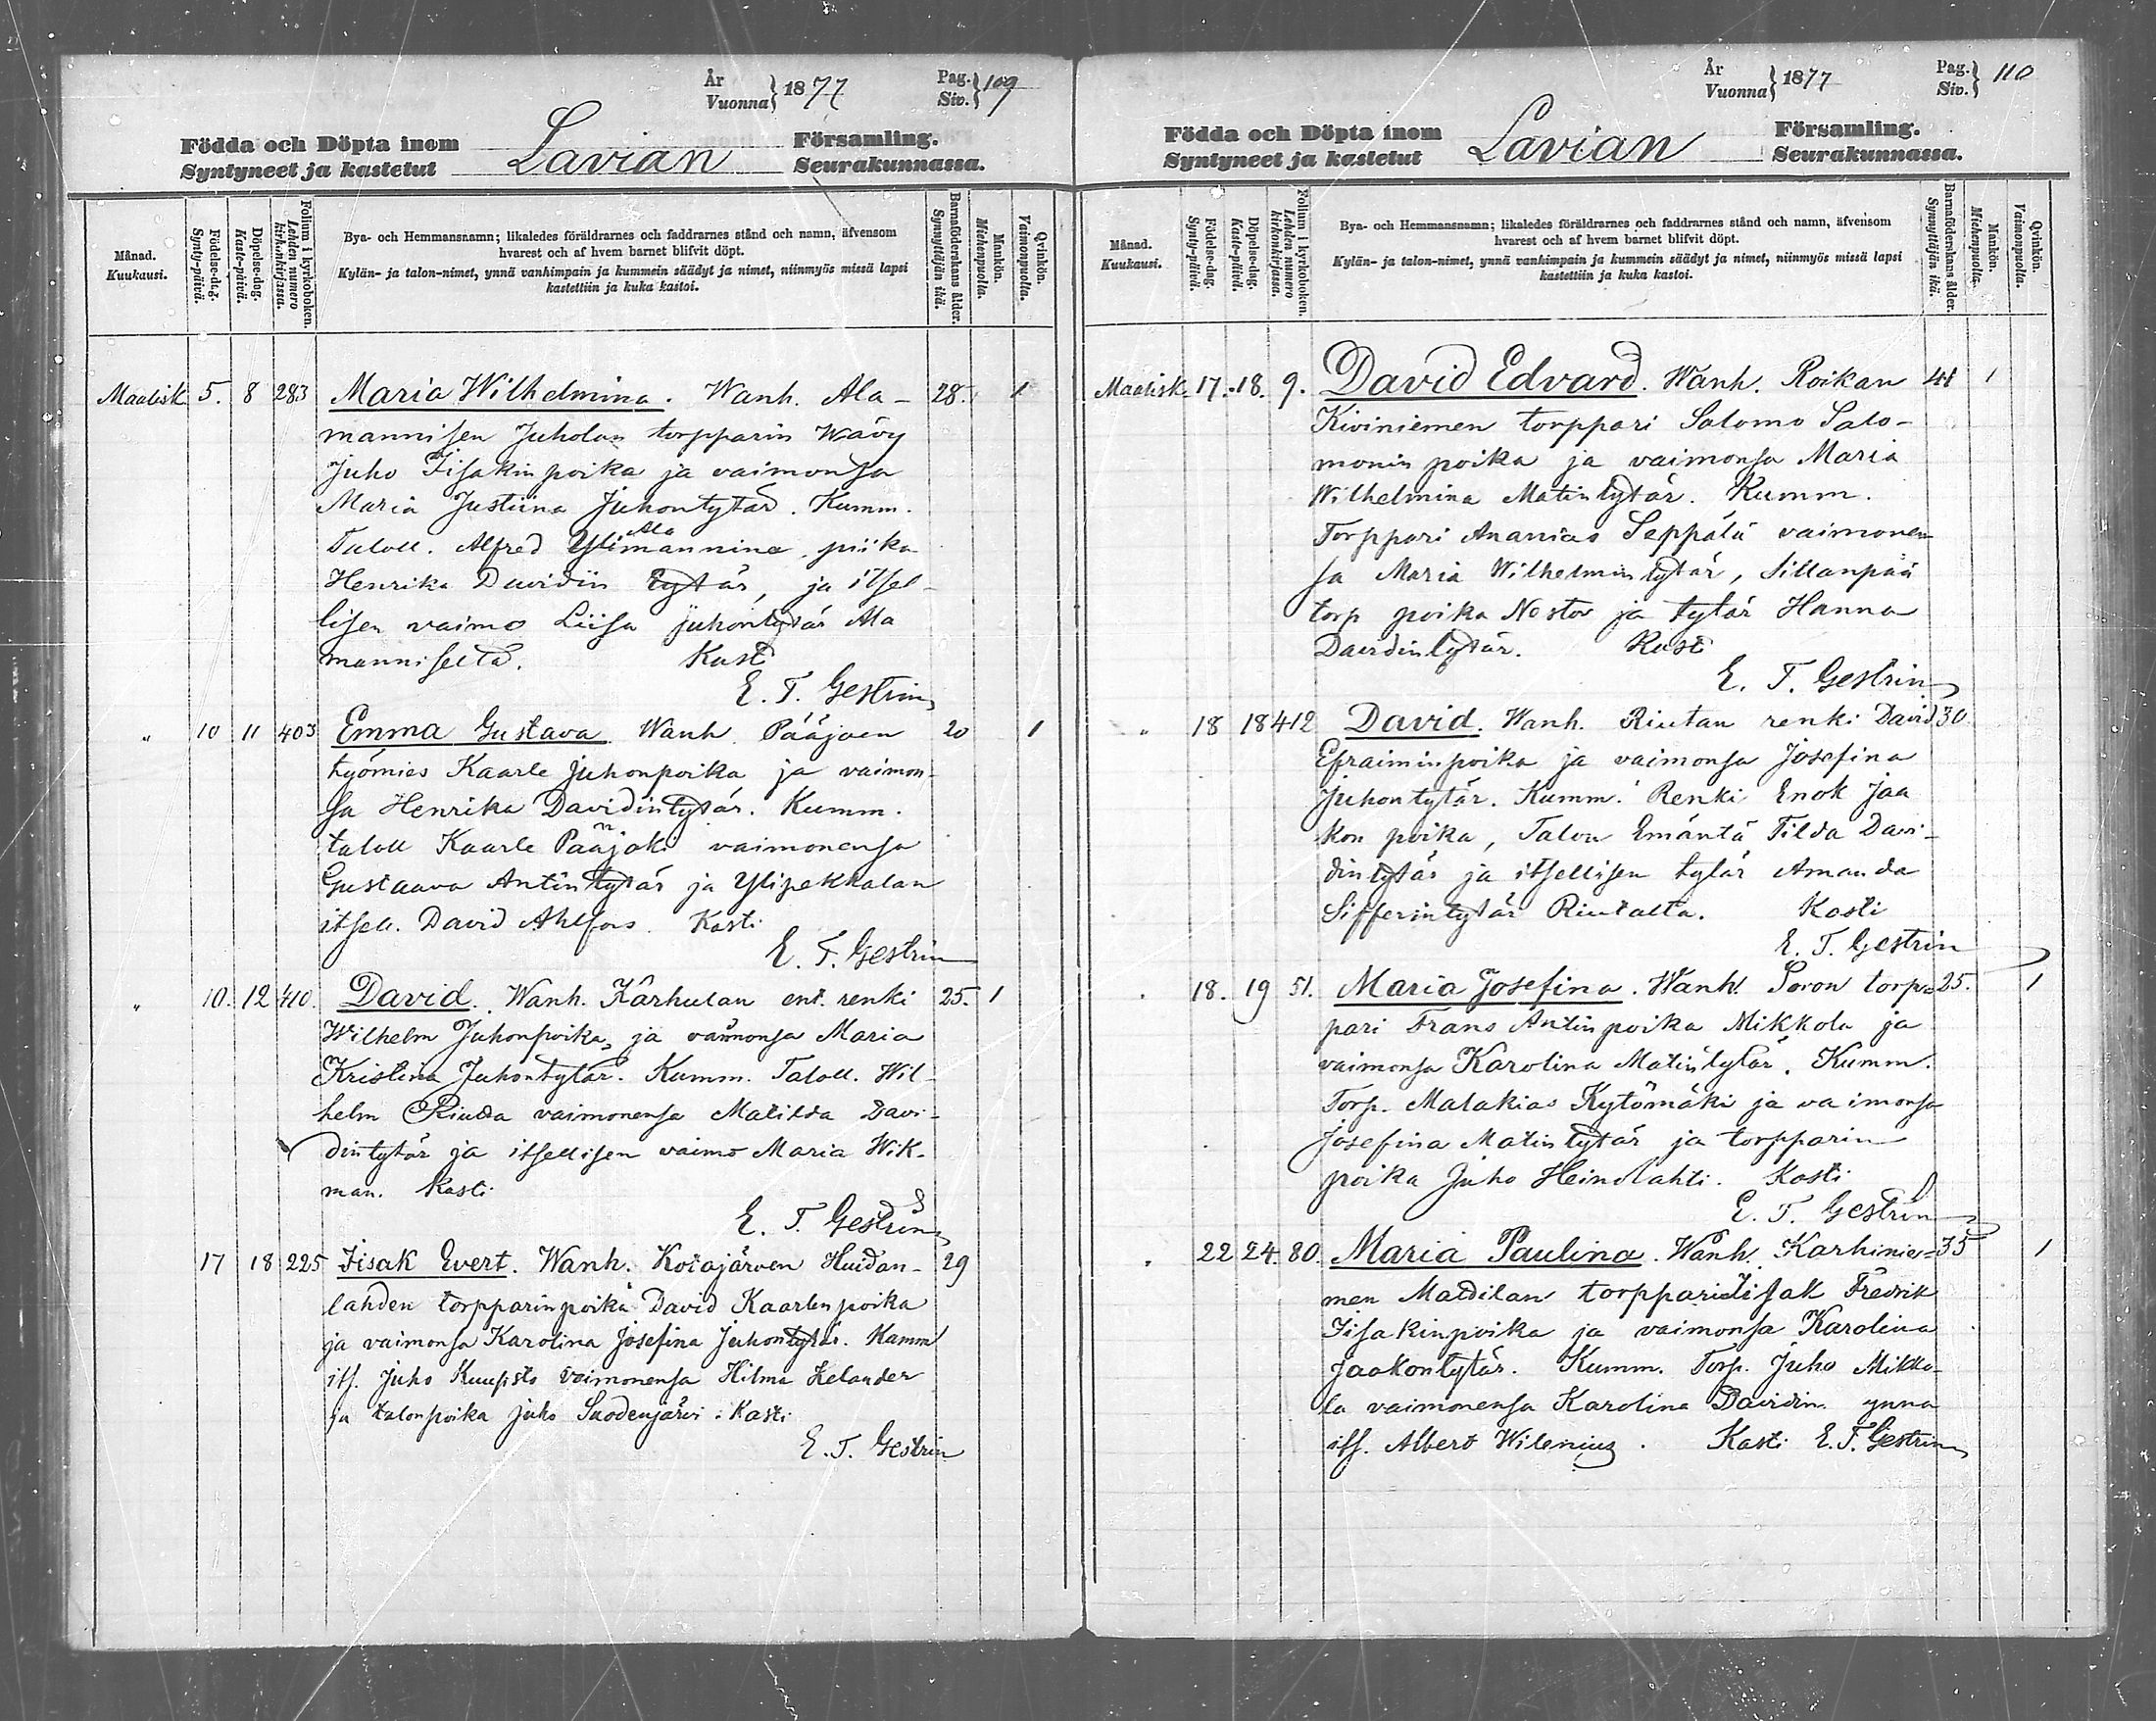 År
Vuonna } 1877
Pag.
Siv. } 109
Födda och Döpta inom
Syntyneet ja kastetut
Lavian
Församling.
Seurakunnassa.
Månad.
Kuukausi.
Födelse-dag.
Synty-päivä.
Döpelse-dag.
Kaste-päivä.
Folium i kyrkoboken.
Lehden numero kirkonkirjassa.
Bya- och Hemmansnamn; likaledes föräldrarnes och faddrarnes stånd och namn, äfvensom
hvarest och af hvem barnet blifvit döpt.
Kylän- ja talon-nimet, ynnä vanhimpain ja kummein säädyt ja nimet, niinmyös missä lapsi
kastettiin ja kuka kastoi.
Barnaföderskans ålder.
Synnyttäjän ikä.
Mankön.
Miehenpuolta.
Qvinkön.
Vaimonpuolta.
Maalisk. 5. 8 283 Maria Wilhelmina. Wanh. Ala- 28. 1
mannisen Juholan torpparin Wävy
Juho Iisakinpoika ja vaimonsa
Maria Justiina Juhontytär. Kumm.
Ala
Taloll. Alfred Ylimannine piika
Henrika Davidiin tytär, ja itsel-
lisen vaimo Liisa Juhontytär Ala
manniselta. Kast
E. T. Gestrin
" 10 11 403 Emma Gustava Wanh. Pääjoen 20 1
työmies Kaarle Juhonpoika ja vaimon-
sa Henrika Davidintytär. Kumm.
taloll Kaarle Pääjoki vaimonensa
Gustaava Antintytär ja Ylipekkalan
itsell. David Ahlfors. Kasti
E. T. Gestrin
" 10. 12 410. David. Wanh. Kärhulan ent. renki 25. 1
Wilhelm Juhonpoika, ja vaimonsa Maria
Kristina Juhontytär. Kumm. Taloll. Wil-
helm Riutta vaimonensa Matilda Davi-
dintytär ja itsellisen vaimo Maria Wik-
man. Kasti
E. T. Gestrin
17 18 225 Iisak Evert. Wanh. Kotajärven Huidan- 29
lahden torpparinpoika David Kaarlenpoika
ja vaimonsa Karolina Josefina Juhontytär. Kumm
its. Juho Kuusisto vaimonensa Hilma Helander
ja talonpoika Juho Suodenjärvi. Kasti
E. T. Gestrin
År
Vuonna } 1877
Pag.
Siv. } 110
Födda och Döpta inom
Syntyneet ja kastetut
Lavian
Församling.
Seurakunnassa.
Månad.
Kuukausi.
Födelse-dag.
Synty-päivä.
Döpelse-dag.
Kaste-päivä.
Folium i kyrkoboken.
Lehden numero kirkonkirjassa.
Bya- och Hemmansnamn; likaledes föräldrarnes och faddrarnes stånd och namn, äfvensom
hvarest och af hvem barnet blifvit döpt.
Kylän- ja talon-nimet, ynnä vanhimpain ja kummein säädyt ja nimet, niinmyös missä lapsi
kastettiin ja kuka kastoi.
Barnaföderskans ålder.
Synnyttäjän ikä.
Mankön.
Miehenpuolta.
Qvinkön.
Vaimonpuolta.
Maalisk. 17. 18. 9. David Edvard. Wanh. Roikan 41 1
Kiviniemen torppari Salomo Salo-
monin poika ja vaimonsa Maria
Wilhelmina Matintytär. Kumm.
Torppari Ananias Seppälä vaimonen
sa Maria Wilhelmintytär, Sillanpää
torp poika Nestor ja tytär Hanna
Davidintytär. Kasti
E. T. Gestrin
" 18 18 412 David. Wanh. Riutan renki David 30
Efraiminpoika ja vaimonsa Josefina
Juhontytär. Kumm. Renki Enok Jaa
kon poika, Talon Emäntä Tilda Davi-
dintytär ja itsellisen tytär Amanda
Sifferintytär Riutalta. Kasti
E. T. Gestrin
" 18. 19 51. Maria Josefina. Wanh. Soron torp= 25. 1
pari Frans Antinpoika Mikkola ja
vaimonsa Karolina Matintytär. Kumm.
Torp. Malakias Kytömäki ja vaimonsa
Josefina Matintytär ja torpparin
poika Juho Heinolahti. Kasti
E. T. Gestrin
" 22 24. 80. Maria Paulina. Wanh. Karhinie= 35 1
men Mattilan torppari Iisak Fredrik
Iisakinpoika ja vaimonsa Karolina
Jaakontytär. Kumm. Torp. Juho Mikko-
la vaimonensa Karolina Davidin. ynna
its. Albert Wilenius. Kasti E. T. Gestrin